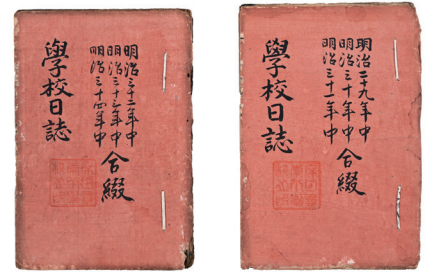 明治三十二年中
明治三十三年中
明治三十四年中
合綴
學校日誌
明治二十九年中
明治三十年中
明治三十一年中
合綴
學校日誌